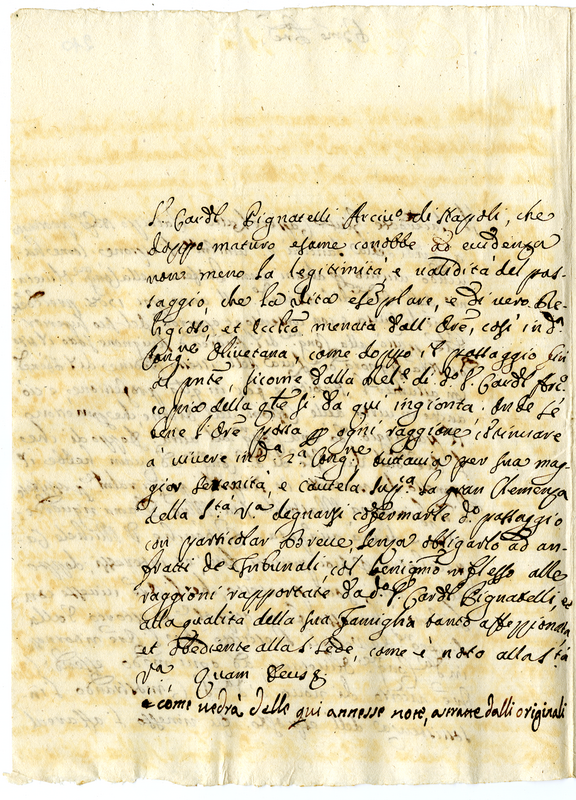 S.r Cardl Pignatelli Arciu.o di Napoli, che
doppo maturo esame conobbe ad euidenza
non meno la legitimità, e ualidità del pas-
saggio, che la uita esẽplare, e di uero Re-
ligioso, et Eccl.co menata dall' Ore, così in d.a
Cong.ne Oliuetana, come doppo il passaggio sin
al pñte, sicome dalla Rel.e di d.o S.r Cardl Arc.o
copia della qle si dà qui ingionta. Onde se
bene l'Ore possa p ogni raggione cõtinuare
a uiuere in d.a 2.a Cong.ne tuttauia per sua mag-
gior serenità, e cautela supp.ca la gran Clemenza
della S.tà V.a degnarsi cõfermarle d.o passaggio
con particolar Breue, senza obligarlo ad an-
fratti de Tribunali, col benigno riflesso alle
raggioni rapportate da d.o S.r Cardl Pignatelli, et
alla qualità della sua Famiglia tanto affezzionata
et obediente alla S. Sede, come è noto alla S.tà
V.a Quam Deus &
come uedrà delle qui annesse note, astratte dalli originali